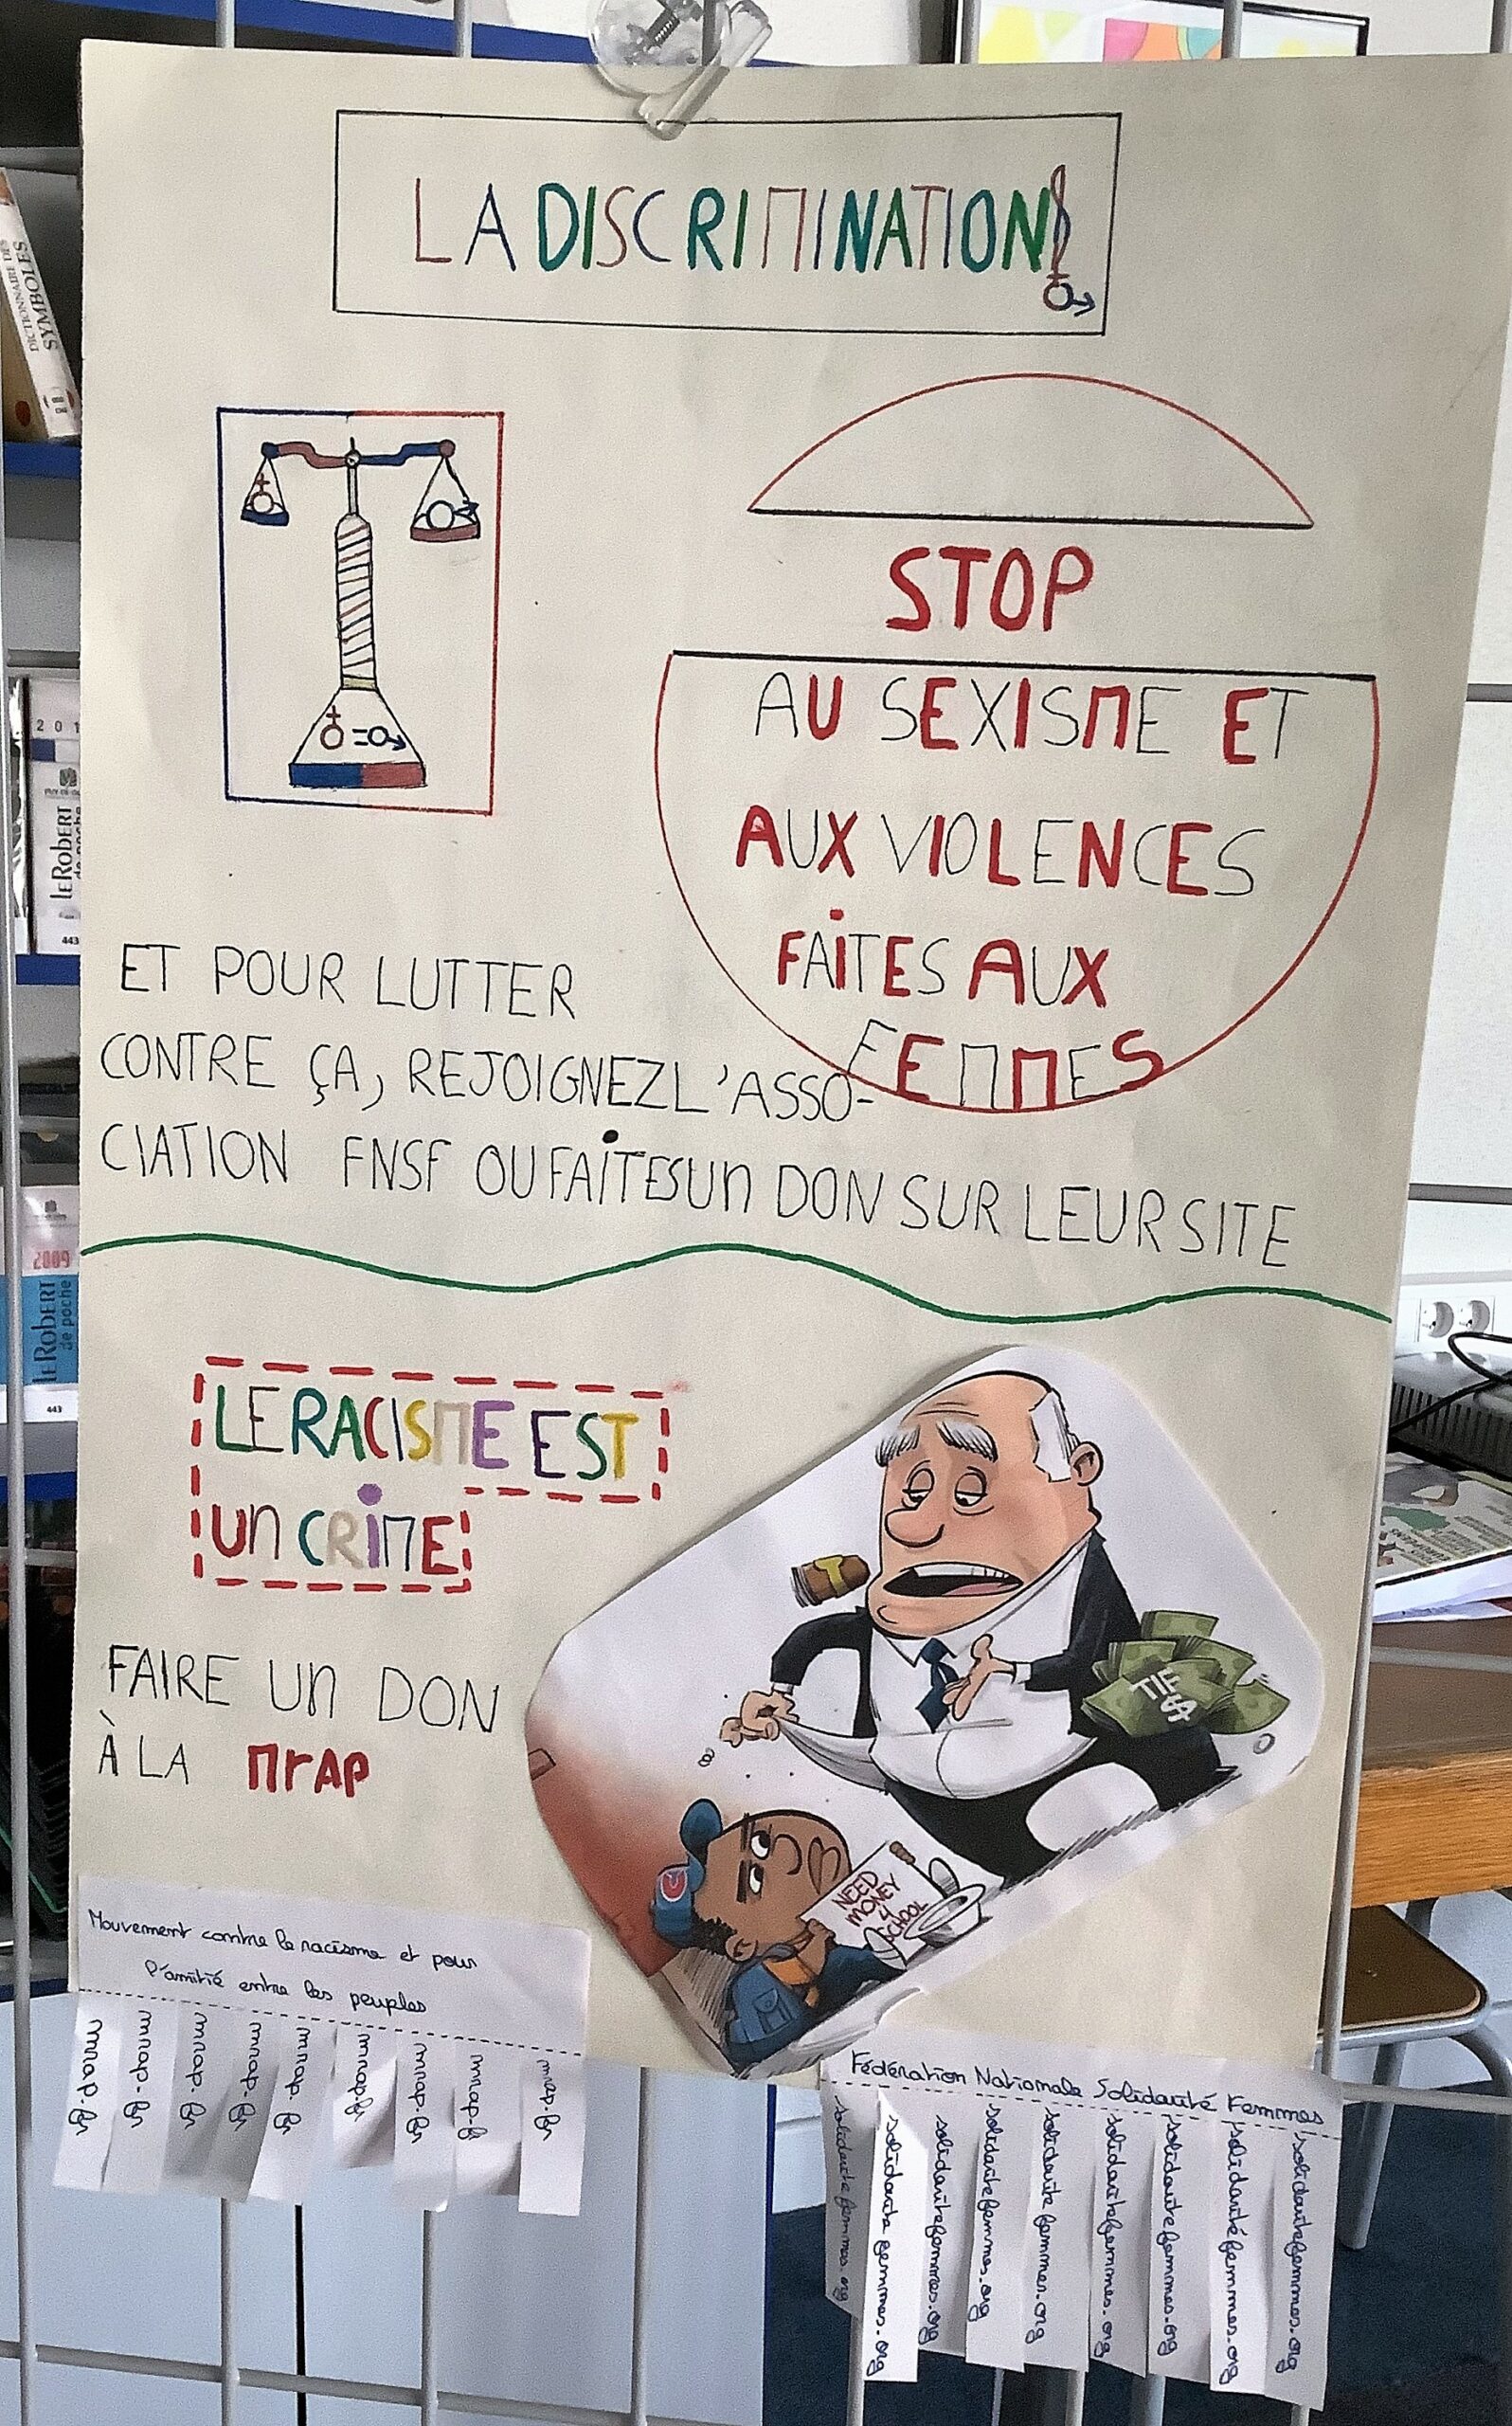 LA DISCRIMINATION
♀=♂
STOP
AU SEXISME ET
AUX VIOLENCES
FAITES AUX
FEMMES
ET POUR LUTTER
CONTRE ÇA, REJOIGNEZ L'ASSO-
CIATION FNSF OU FAITES UN DON SUR LEUR SITE
LE RACISME EST
UN CRIME
FAIRE UN DON
À LA MrAP
NEED
MONEY
4
SCHOOL
Mouvement contre le racisme et pour
l'amitié entre les peuples
mrap.fr
mrap.fr
mrap.fr
mrap.fr
mrap.fr
mrap.fr
mrap.fr
mrap.fr
mrap.fr
Fédération Nationale Solidarité Femmes
solidaritefemmes.org
solidarite femmes.org
solidaritefemmes.org
solidaritefemmes.org
solidarite femmes.org
solidaritefemmes.org
solidaritefemmes.org
solidaritéfemmes.org
solidaritefemmes.org
DICTIONNAIRE DES
SYMBOLES
LE ROBERT
de poche
443
2009
LE ROBERT
de poche
443